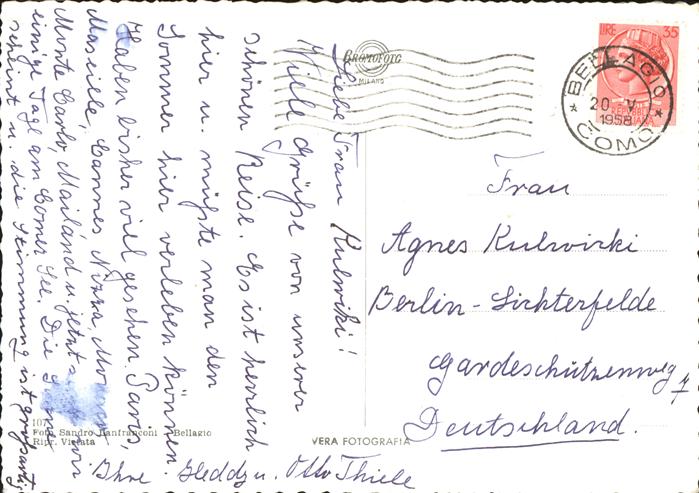 Liebe Frau Kulwiki!
Viele Grüße von unserer
schönen Reise. Es ist herrlich
hier u. müßte man den
Sommer hier verleben können.
Haben bisher viel gesehen. Paris,
Marseille, Cannes, Nizza,
Monte Carlo, Mailand u. jetzt
einige Tage am Comer See. Die
scheint u. die Stimmung ist großartig.
Ihre Heddy u. Otto Thiele
BROMOFOTO
MILANO
LIRE 35
BELLAGIO
20 - V
1958
COMO
Frau
Agnes Kulwirki
Berlin - Lichterfelde
Gardeschützenweg 7
Deutschland.
107
Foto Sandro Lanfranconi - Bellagio
Ripr. Vietata
VERA FOTOGRAFIA